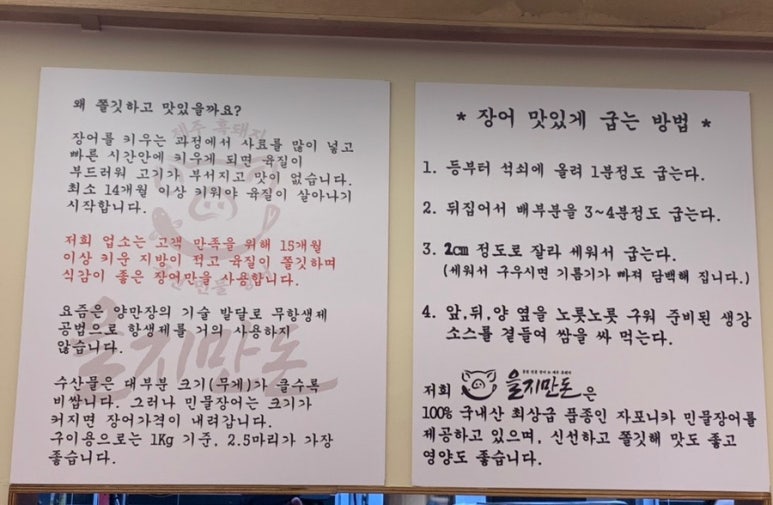 왜 쫄깃하고 맛있을까요?
장어를 키우는 과정에서 사료를 많이 넣고
빠른 시간안에 키우게 되면 육질이
부드러워 고기가 부서지고 맛이 없습니다.
최소 14개월 이상 키워야 육질이 살아나기
시작합니다.
저희 업소는 고객 만족을 위해 15개월
이상 키운 지방이 적고 육질이 쫄깃하며
식감이 좋은 장어만을 사용합니다.
요즘은 양만장의 기술 발달로 무항생제
공법으로 항생제를 거의 사용하지
않습니다.
수산물은 대부분 크기(무게)가 클수록
비쌉니다. 그러나 민물장어는 크기가
커지면 장어가격이 내려갑니다.
구이용으로는 1Kg 기준, 2.5마리가 가장
좋습니다.
제주 흑돼지
을지만돈
* 장어 맛있게 굽는 방법 *
1. 등부터 석쇠에 올려 1분정도 굽는다.
2. 뒤집어서 배부분을 3~4분정도 굽는다.
3. 2cm 정도로 잘라 세워서 굽는다.
(세워서 구우시면 기름기가 빠져 담백해 집니다.)
4. 앞,뒤,양 옆을 노릇노릇 구워 준비된 생강
소스를 곁들여 쌈을 싸 먹는다.
저희 을지만돈은
100% 국내산 최상급 품종인 자포니카 민물장어를
제공하고 있으며, 신선하고 쫄깃해 맛도 좋고
영양도 좋습니다.